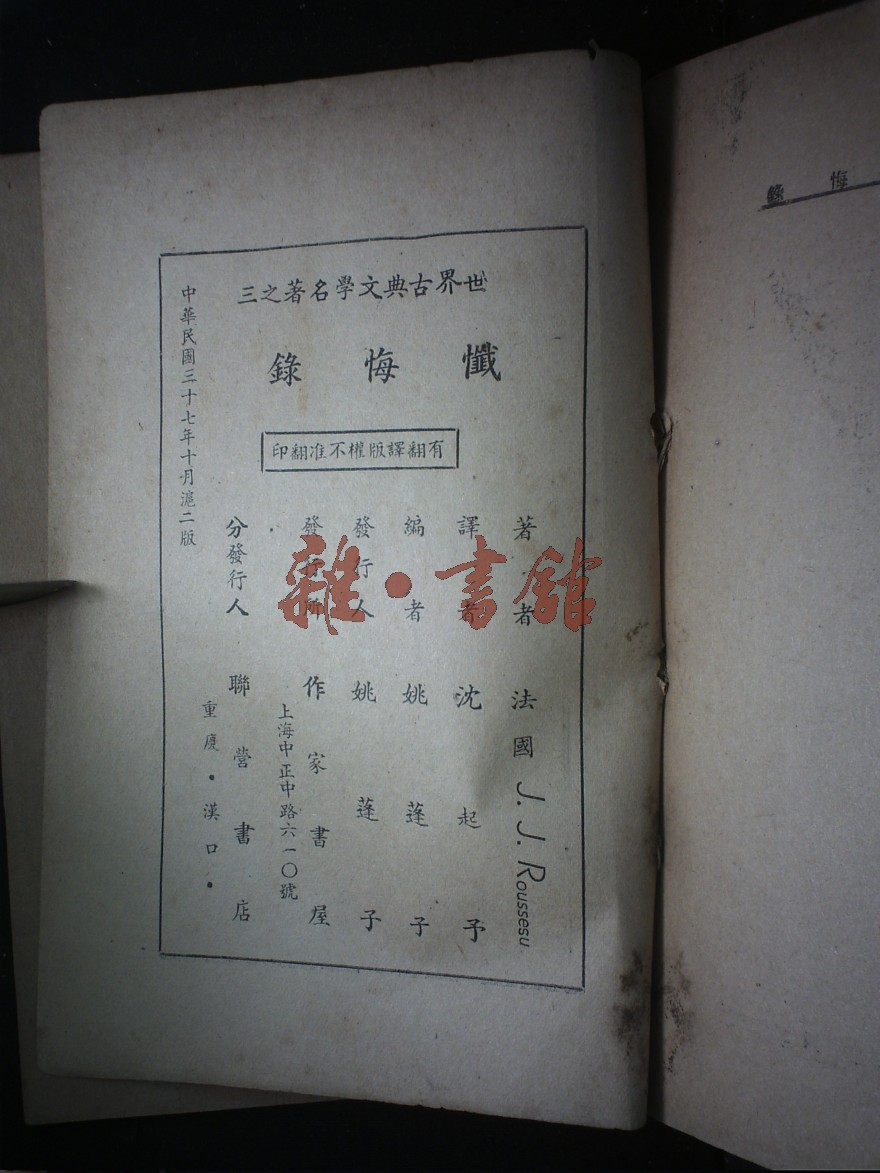 世界古典文學名著之三
懺悔錄
有翻譯版權不准翻印
著者 法國 J. J. Roussesu
譯者 沈起予
編者 姚蓬子
發行人 姚蓬子
發行所 作家書屋
上海中正中路六一〇號
分發行人 聯營書店
重慶·漢口·
中華民國三十七年十月滬二版
雜·書館
悔錄